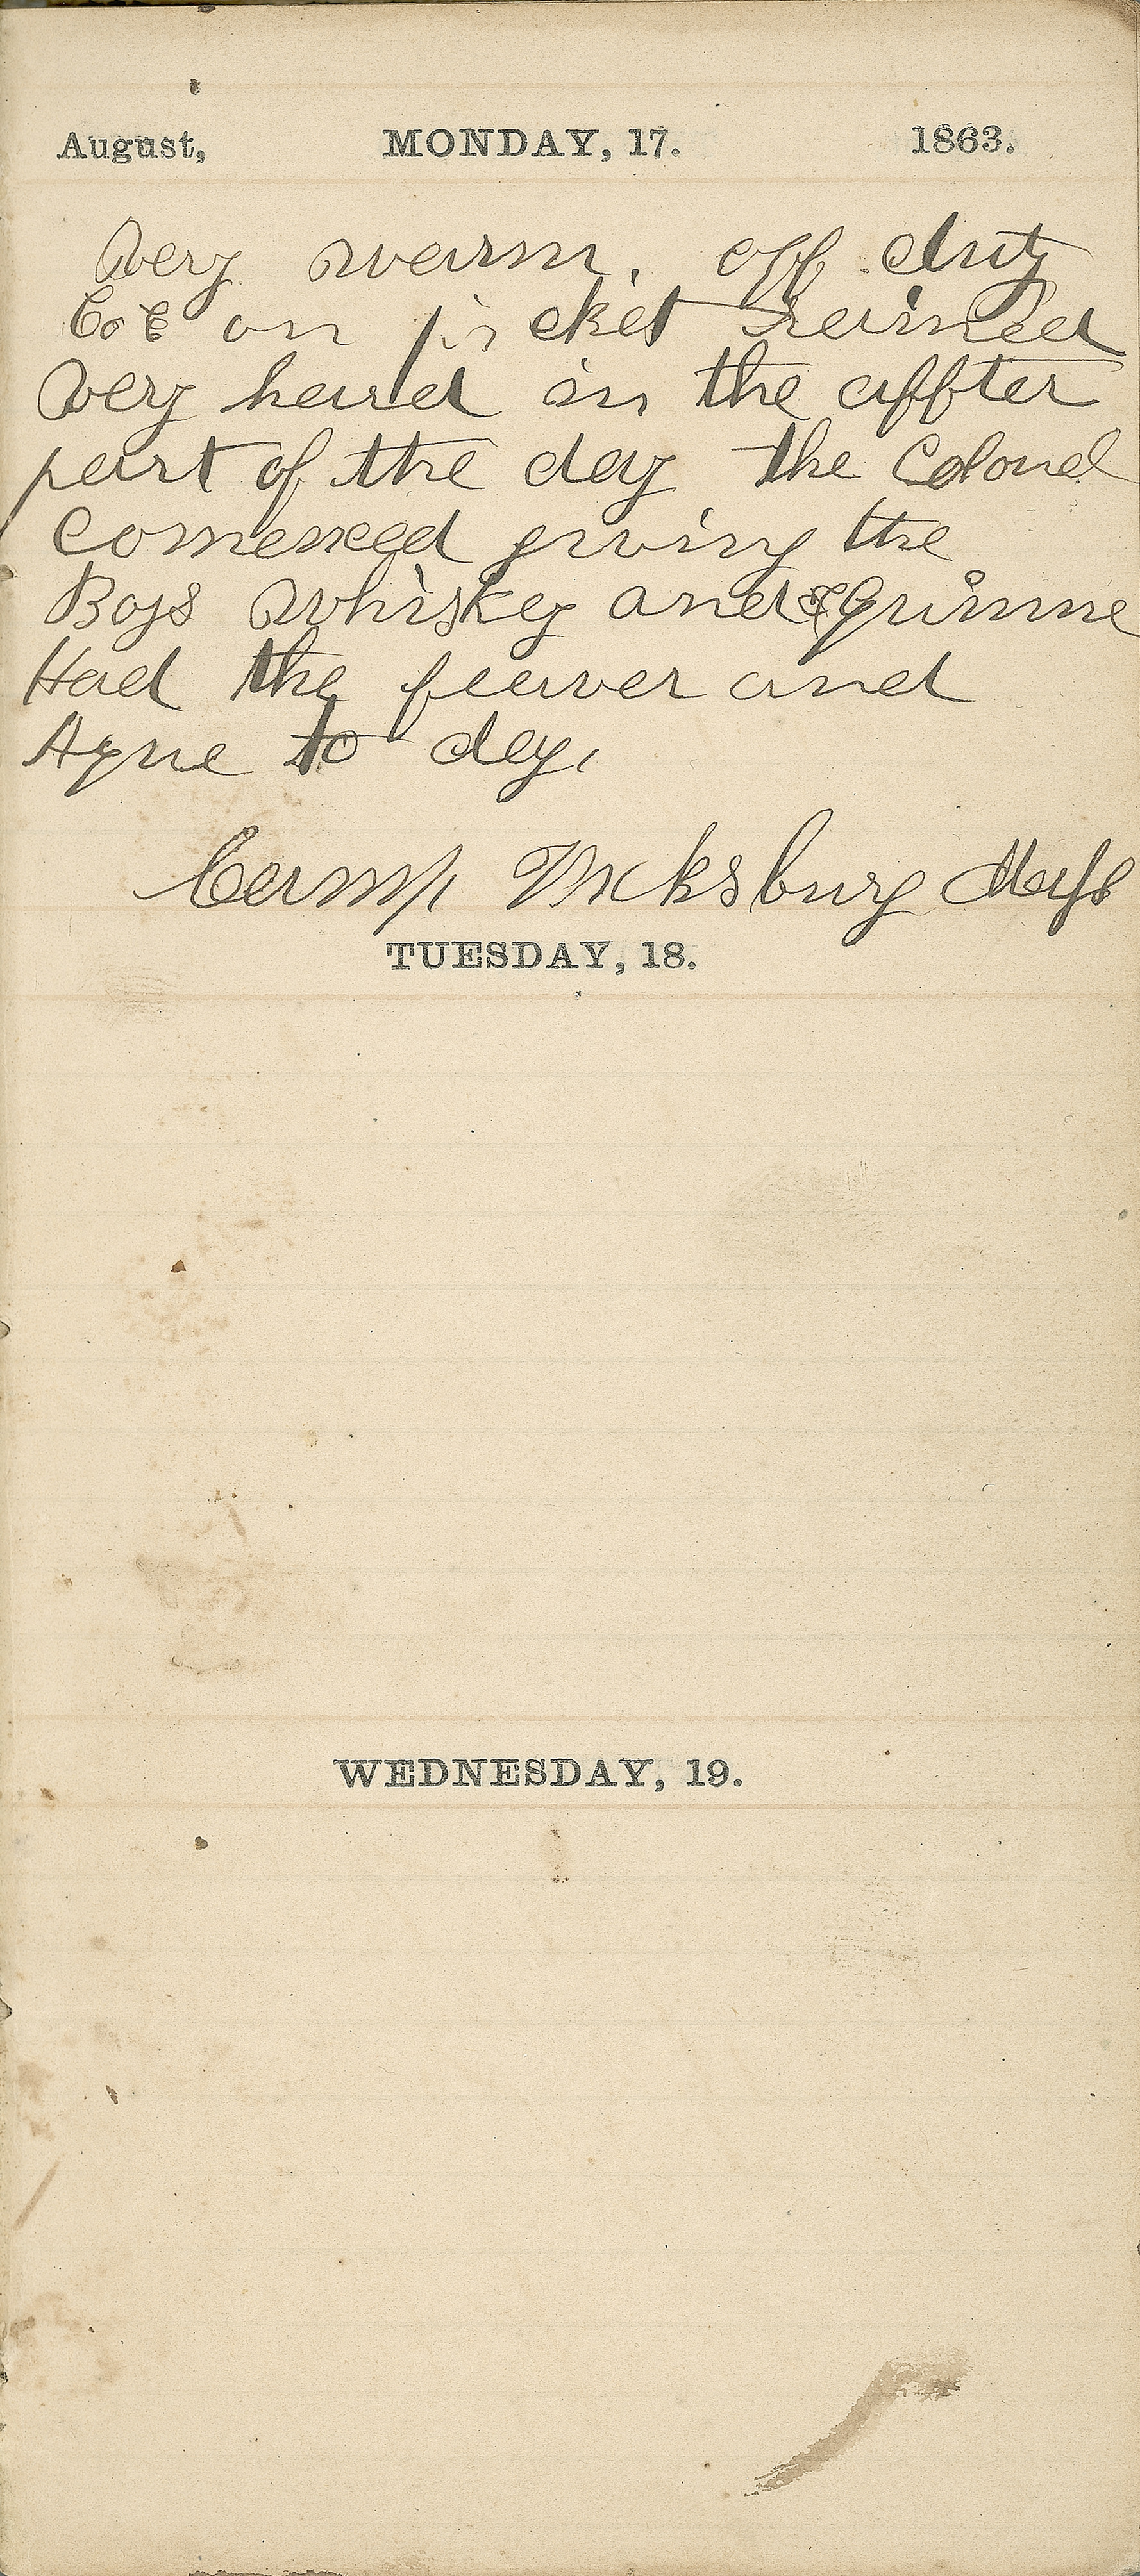 August, MONDAY, 17. 1863.
Very warm. off duty
Co E on picket Rained
Very hard in the affter
part of the day the Colonel
Comenced giving the
Boys Whiskey and Quinine
Had the feaver and
Ague to day,
Camp Vicksburg Miss
TUESDAY, 18.
WEDNESDAY, 19.